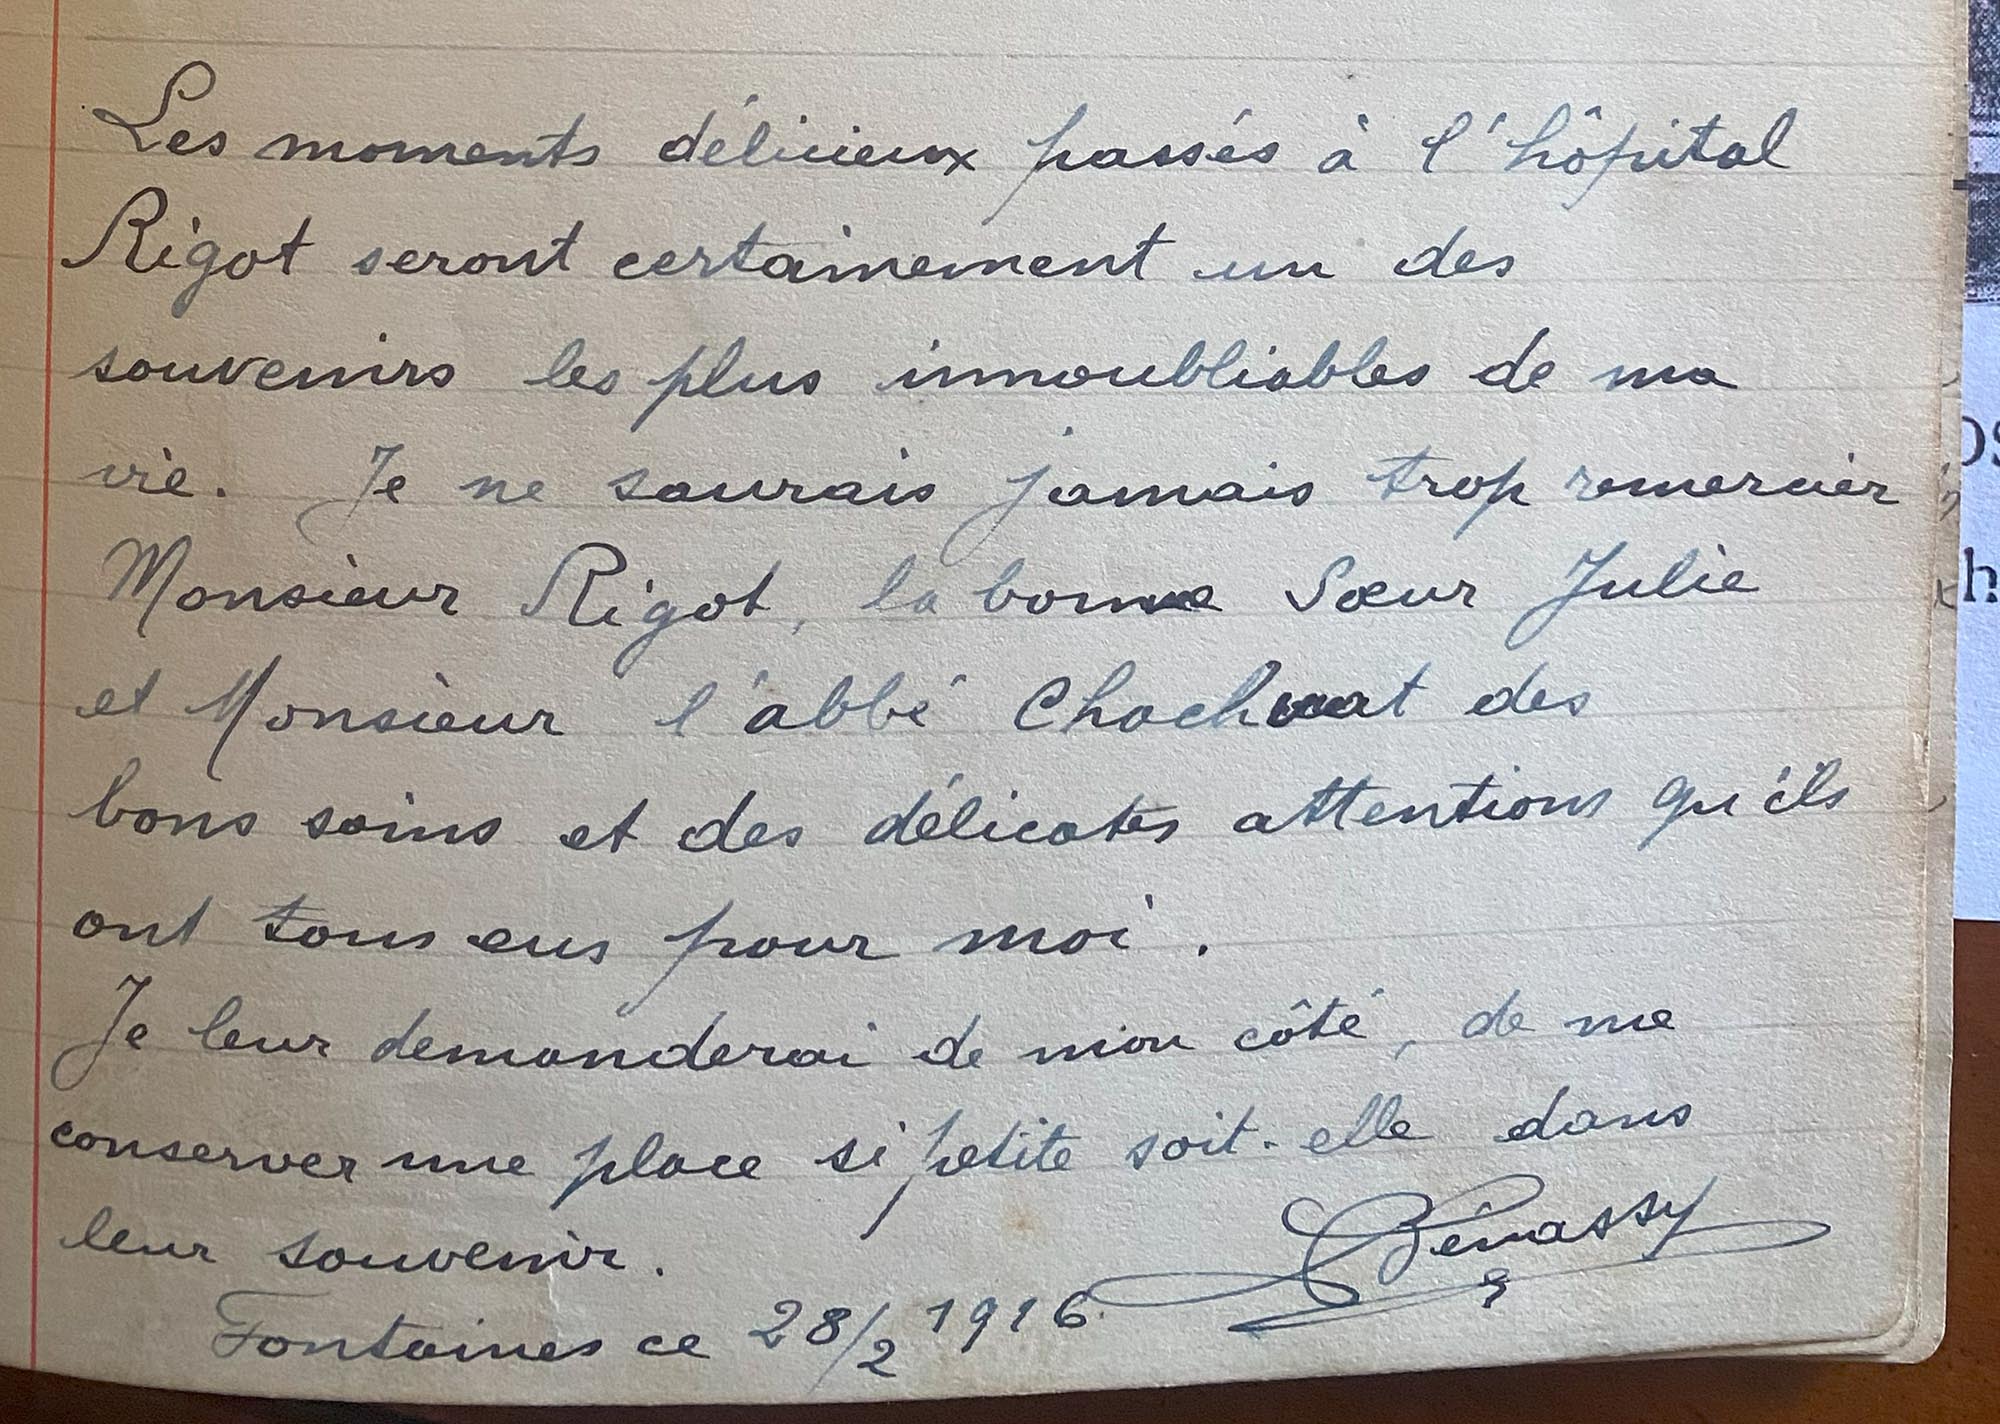 Les moments délicieux passés à l'hôpital
Rigot seront certainement un des
souvenirs les plus innoubliables de ma
vie. Je ne saurais jamais trop remercier
Monsieur Rigot, la bonne Sœur Julie
et Monsieur l'abbé des
bons soins et des délicates attentions qu'ils
ont tous eus pour moi.
Je leur demanderai de mon côté, de me
conserver une place si petite soit-elle dans
leur souvenir.
Bénassy
Fontaines ce 28/2 1916.